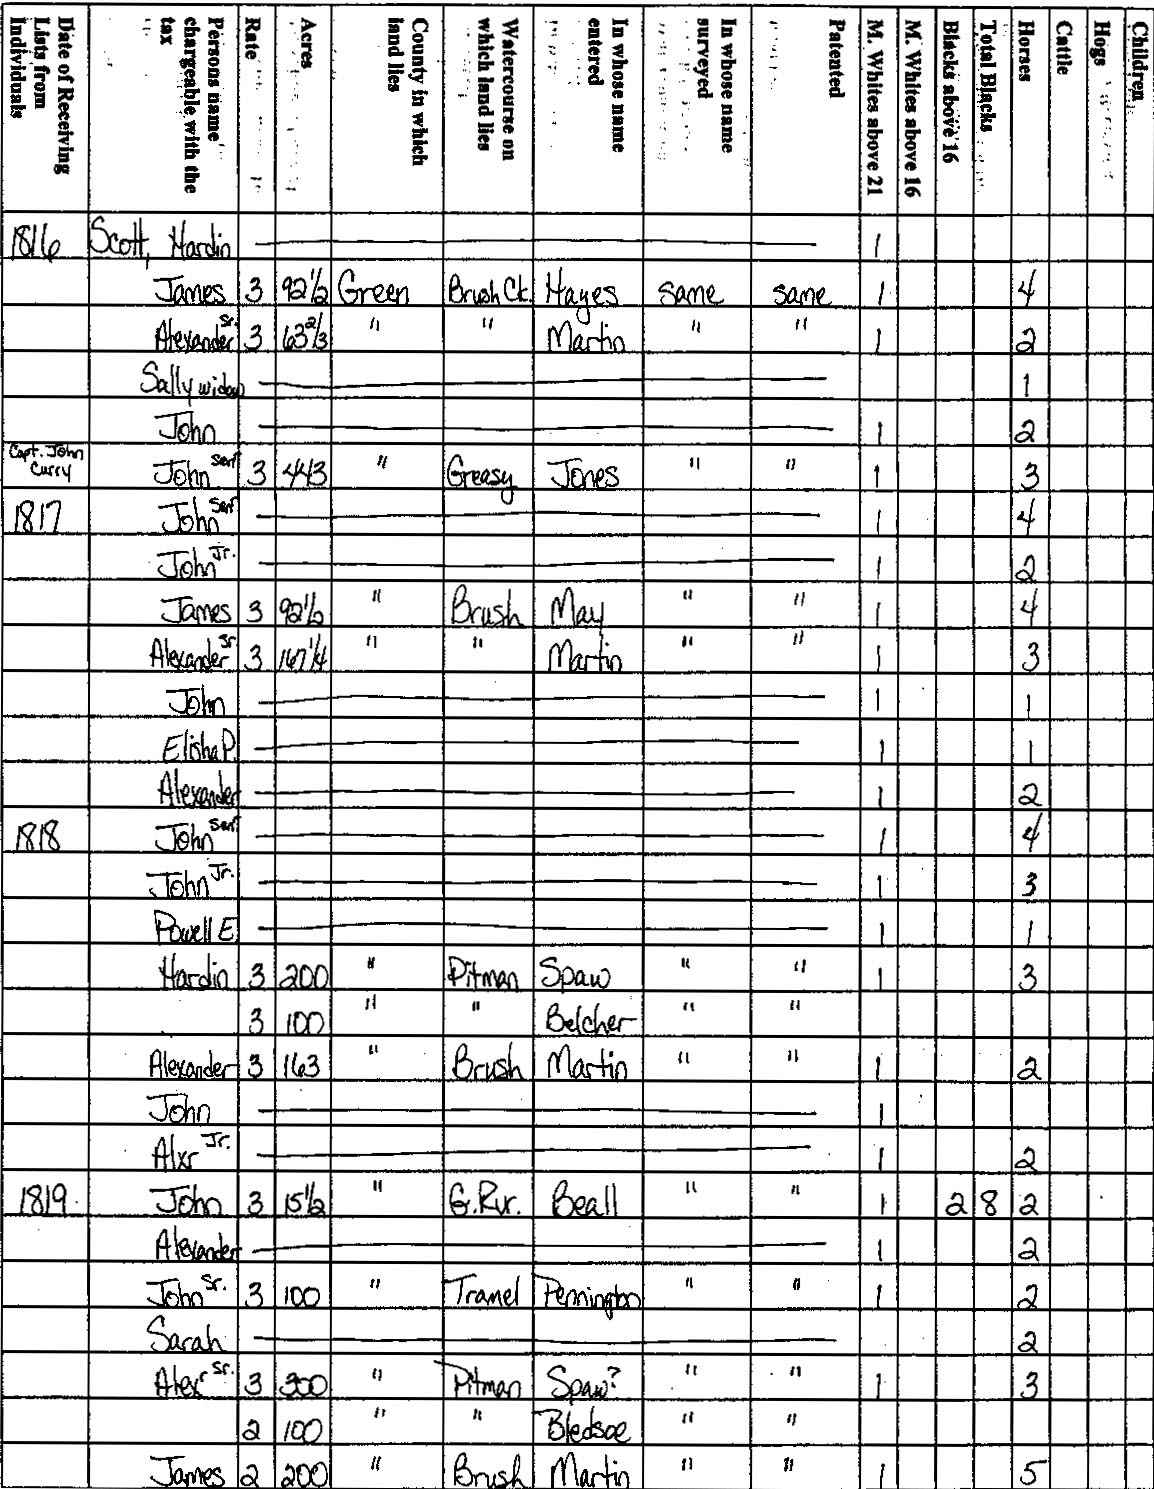 Date of Receiving Lists from Individuals | Persons name chargeable with the tax | Rate | Acres | County in which land lies | Watercourse on which land lies | In whose name entered | In whose name surveyed | Patented | M. Whites above 21 | M. Whites above 16 | Blacks above 16 | Total Blacks | Horses | Cattle | Hogs | Children
1816 Scott, Hardin — 1
James 3 92 1/2 Green Brush Ck. Hayes same same 1 4
Alexander Sr. 3 63 2/3 " " Martin " " 1 2
Sally widow — 1
John — 1 2
Capt. John Curry John Senr 3 443 " Greasy Jones " " 1 3
1817 John Senr — 1 4
John Jr. — 1 2
James 3 92 1/2 " Brush May " " 1 4
Alexander Sr 3 167 1/4 " " Martin " " 1 3
John — 1 1
Elisha P. — 1 1
Alexander — 1 2
1818 John Senr — 1 4
John Jr. — 1 3
Powell E — 1 1
Hardin 3 200 " Pitman Spaw " " 1 3
3 100 " " Belcher " "
Alexander 3 163 " Brush Martin " " 1 2
John — 1
Alxr Jr. — 1 2
1819 John 3 15 1/2 " G. Rvr. Beall " " 1 2 8 2
Alexander — 1 2
John Sr. 3 100 " Tramel Pennington " " 1 2
Sarah — 2
Alexr Sr. 3 300 " Pitman Spaw? " " 1 3
2 100 " " Bledsoe " "
James 2 200 " Brush Martin " " 1 5